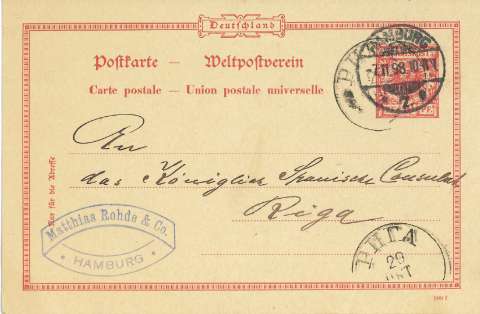 Deutschland
Postkarte – Weltpostverein
Carte postale – Union postale universelle
HAMBURG
An
das Königlich Spanische Consulat
Riga
Nur für die Adresse
Matthias Rohde & Co.
HAMBURG
РИГА
29
ОКТ